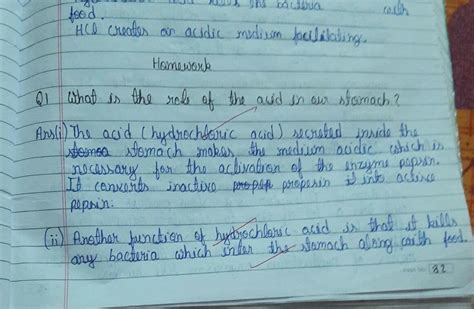 the bacteria with
food.
HCl creates an acidic medium facilitating.
Homework
Q1 What is the role of the acid in our stomach?
Ans(i) The acid (hydrochloric acid) secreted inside the
stomach makes the medium acidic which is
necessary for the activation of the enzyme pepsin.
It converts inactive propesin it into active
pepsin.
(ii) Another function of hydrochloric acid is that it kills
any bacteria which inter the stomach along with food.
82